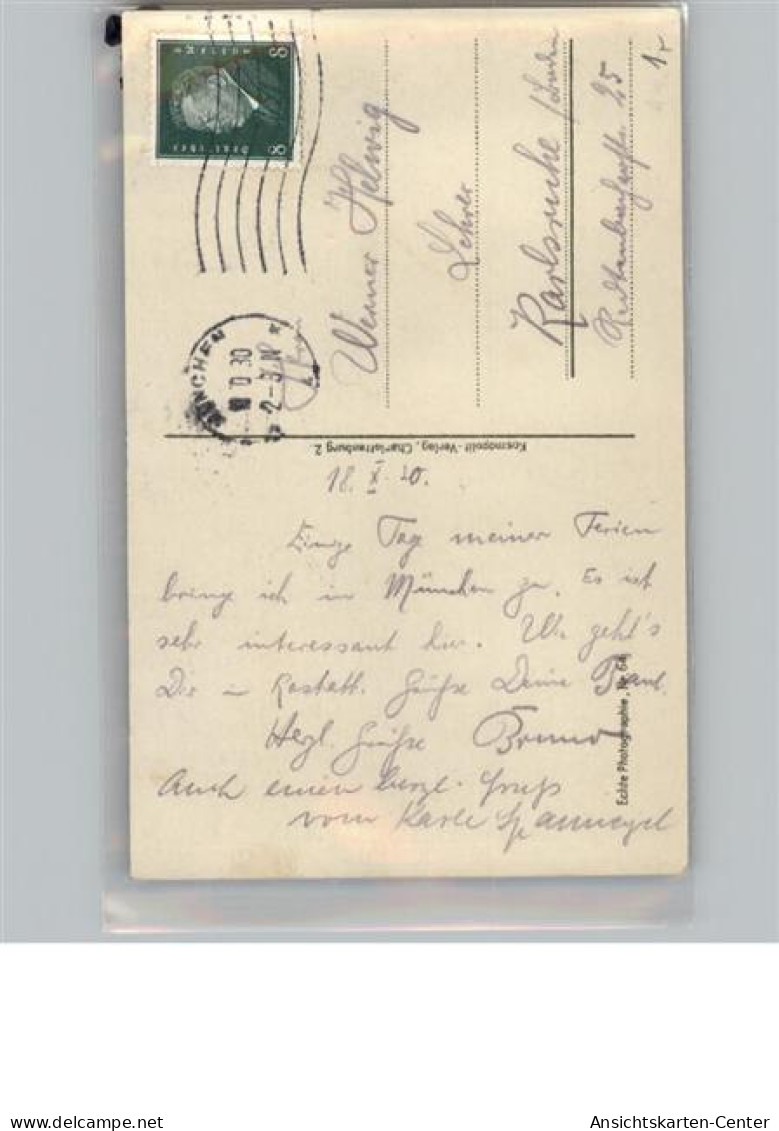 8 8
MÜNCHEN
10.30
2-3 N
Herrn
Werner Helwig
Lehrer
Karlsruhe /Baden
25
Kosmopolit-Verlag, Charlottenburg 2.
18. X. 30.
Einige Tag meiner Ferien
bring ich in München zu. Es ist
sehr interessant hier. Wie geht's
Dir in Rastatt. Grüße Deine Braut.
Herzl. Grüße Bruno
Auch einen herzl. Gruß
vom Karle
Echte Photographie, Nr. 64
Ansichtskarten-Center